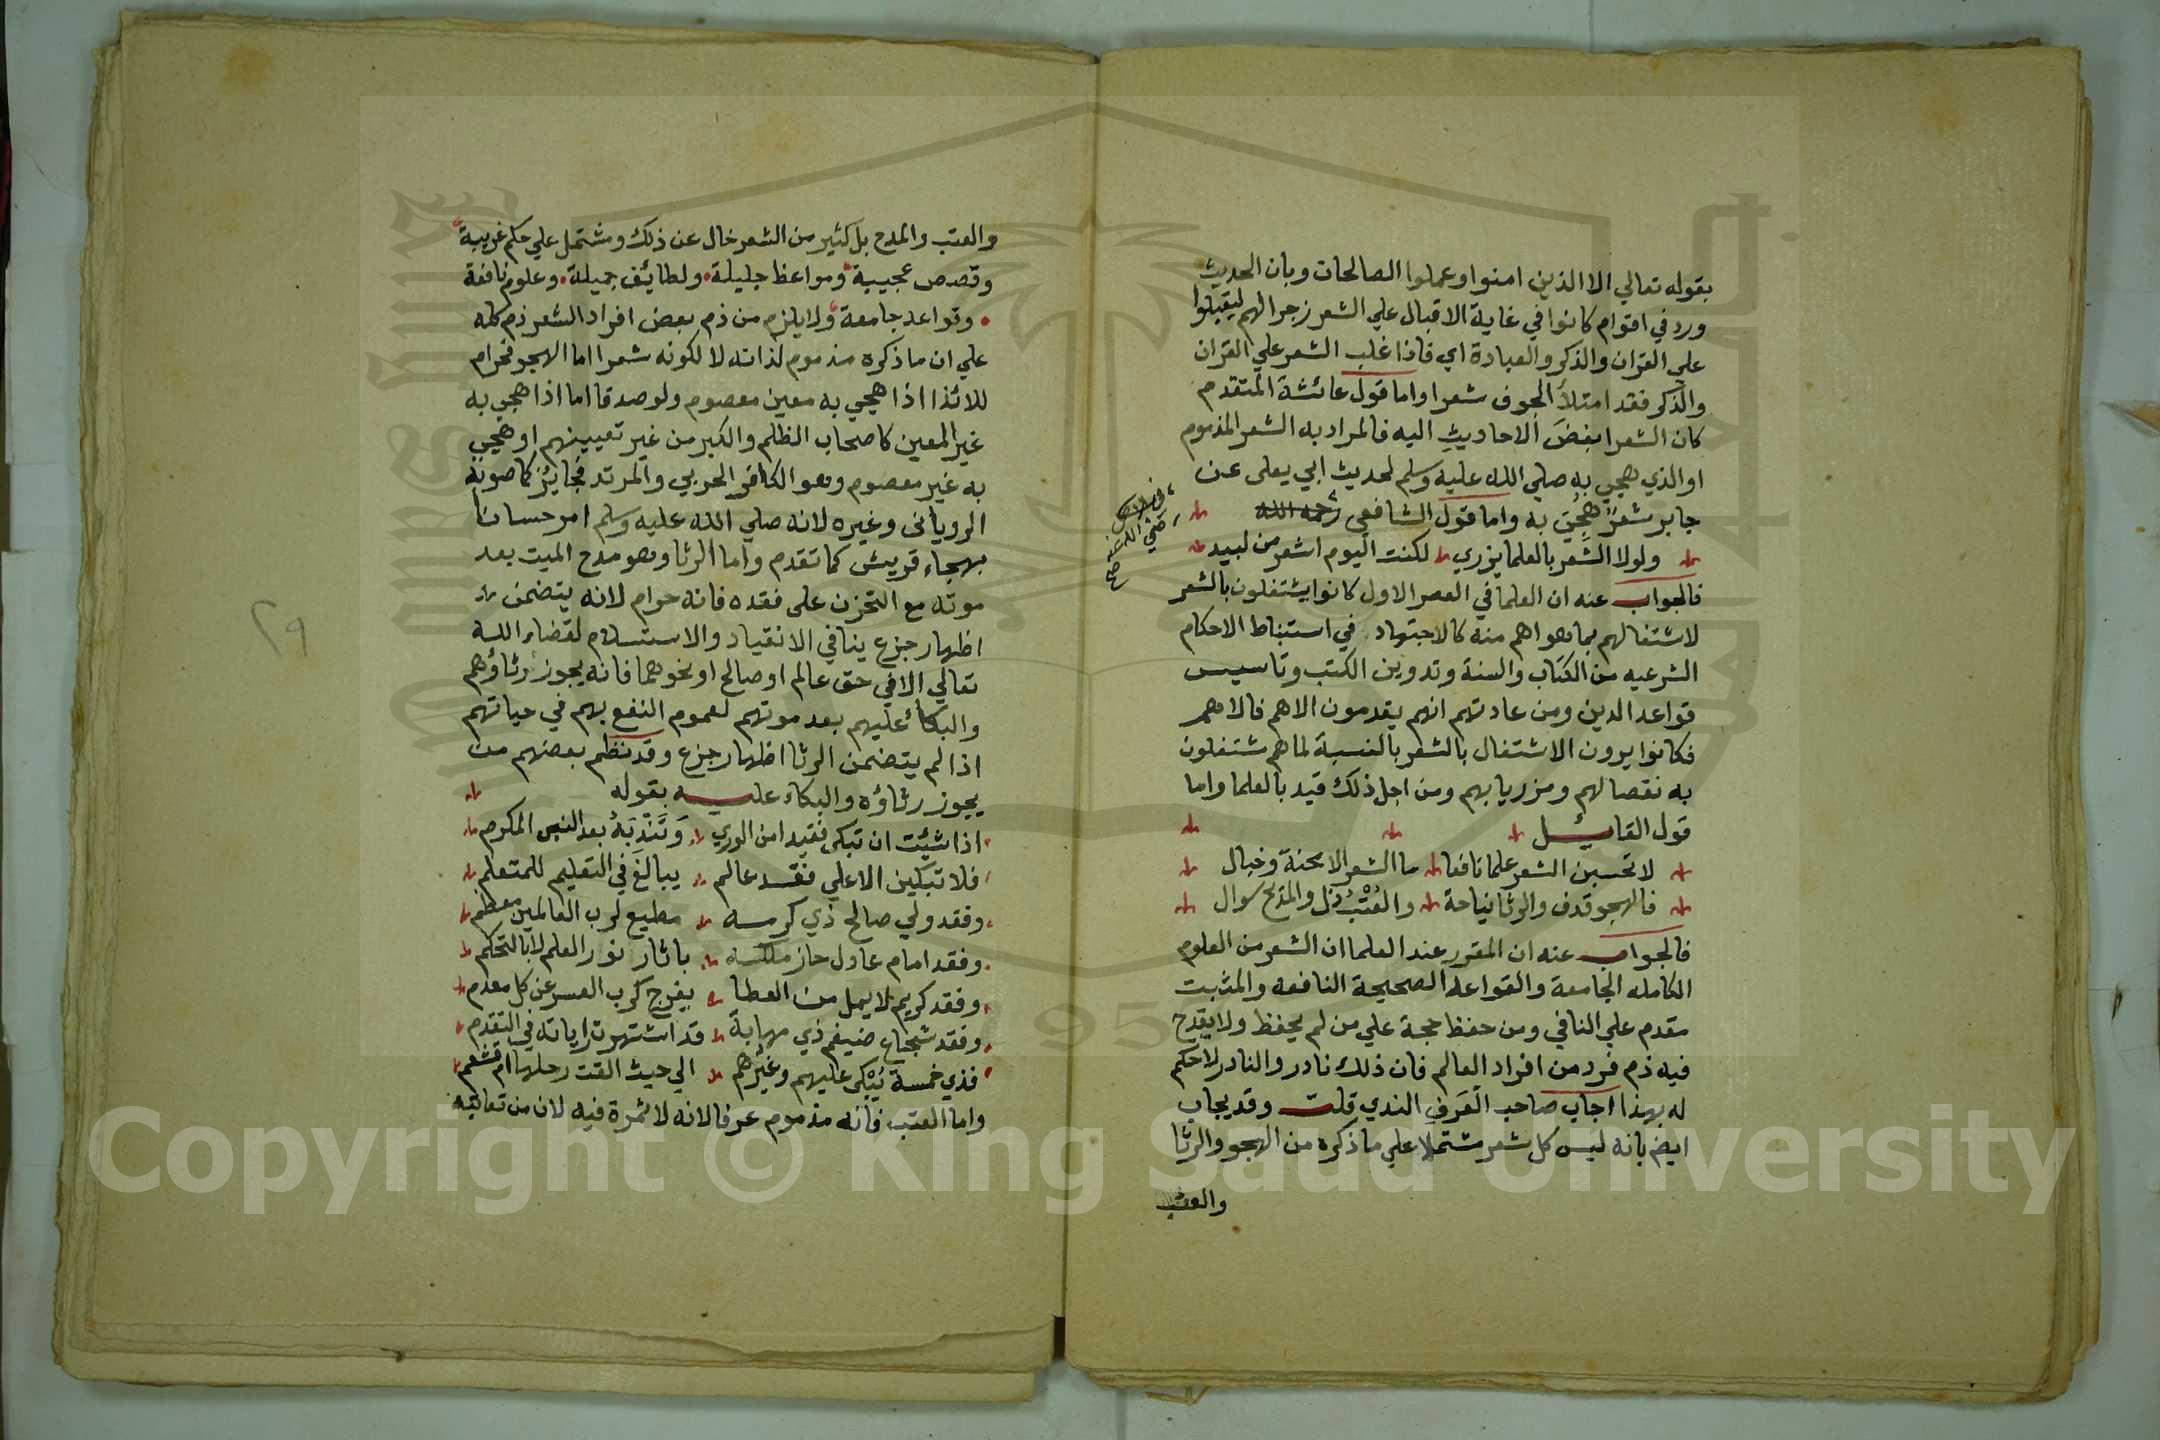 بقوله تعالي الا الذين امنوا وعملوا الصالحات وبان الحديث
ورد في اقوام كانوا في غاية الاقبال علي الشعر زجرا لهم ليقبلوا
علي القران والذكر والعبادة اي فاذا غلب الشعر علي القران
والذكر فقد امتلأ الجوف شعرا واما قول عائشة المتقدم
كان الشعر ابغض الاحاديث اليه فالمراد به الشعر المذموم
او الذي هجي به صلي الله عليه وسلم لحديث ابي يعلى عن
جابر شعرٌ هُجِيَ به واما قول الشافعي رحمه الله
رضي الله عنه صح
ولولا الشعر بالعلما يزري لكنت اليوم اشعر من لبيد
فالجواب عنه ان العلما في العصر الاول كانوا يشتغلون بالشعر
لاشتغالهم بما هو اهم منه كالاجتهاد في استنباط الاحكام
الشرعيه من الكتاب والسنة وتدوين الكتب وتاسيس
قواعد الدين ومن عادتهم انهم يقدمون الاهم فالاهم
فكانوا يرون الاشتغال بالشعر بالنسبة لما هم مشتغلون
به نقصا لهم ومزريا بهم ومن اجل ذلك قيد بالعلما واما
قول القايل
لا تحسبن الشعر علما نافعا ما الشعر الا محنة وخبال
فالهجو قدف والرثا نياحة والعُتْبُ ذل والمدح سوال
فالجواب عنه ان المقرر عند العلما ان الشعر من العلوم
الكامله الجامعة والقواعد الصحيحة النافعه والمثبت
مقدم علي النافي ومن حفظ حجة علي من لم يحفظ ولا يقدح
فيه ذم فرد من افراد العالم فان ذلك نادر والنادر لا حكم
له بهذا اجاب صاحب العَرف الندي قلت وقد يجاب
ايض بانه ليس كل شعر مشتملا علي ما ذكره من الهجو والرثا
والعتب
والعتب والمدح بل كثير من الشعر خال عن ذلك ومشتمل علي حكم غريبة
وقصص عجيبة ومواعظ جليلة ولطايف جميلة وعلوم نافعة
وقواعد جامعة ولا يلزم من ذم بعض افراد الشعر ذم كله
علي ان ما ذكره مذموم لذاته لا لكونه شعرا اما الهجو فحرام
للائذا اذا هجي به معين معصوم ولو صدقا اما اذا هجي به
غير المعين كاصحاب الظلم والكبر من غير تعيينهم او هجي
به غير معصوم وهو الكافر الحربي والمرتد فجايز كما صوبه
الروياني وغيره لانه صلي الله عليه وسلم امر حسانا
بهجاء قريش كما تقدم واما الرثا وهو مدح الميت بعد
موته مع التحزن على فقده فانه حرام لانه يتضمن
اظهار جزع ينافي الانقياد والاستسلام لقضاء الله
تعالي الا في حق عالم او صالح او نحوهما فانه يجوز رثاؤهم
والبكاء عليهم بعد موتهم لعموم النفع بهم في حياتهم
اذا لم يتضمن الرثا اظهار جزع وقد نظم بعضهم من
يجوز رثاؤه والبكاء عليه بقوله
اذا شئت ان تبكي فقيدا من الوري وَتَنْدُبَهُ بعد النبي المكرم
فلا تبكين الا علي فقد عالم يبالغ في التعليم للمتعلم
وفقد ولي صالح ذي كرمه مطيع لرب العالمين معظم
وفقد امام عادل حاز ملكه باثار نور العلم لا بالتحكم
وفقد كريم لا يمل من العطا يفرج كرب العسر عن كل معدم
وفقد شجاع ضيغم ذي مهابة قد اشتهرت راياته في التقدم
فذي خمسة يُبْكي عليهم وغيرُهم الي حيث القت رحلها ام قشعم
واما العتب فانه مذموم عرفا لانه لا ثمرة فيه لان من تعاتبه
٢٩
Copyright © King Saud University